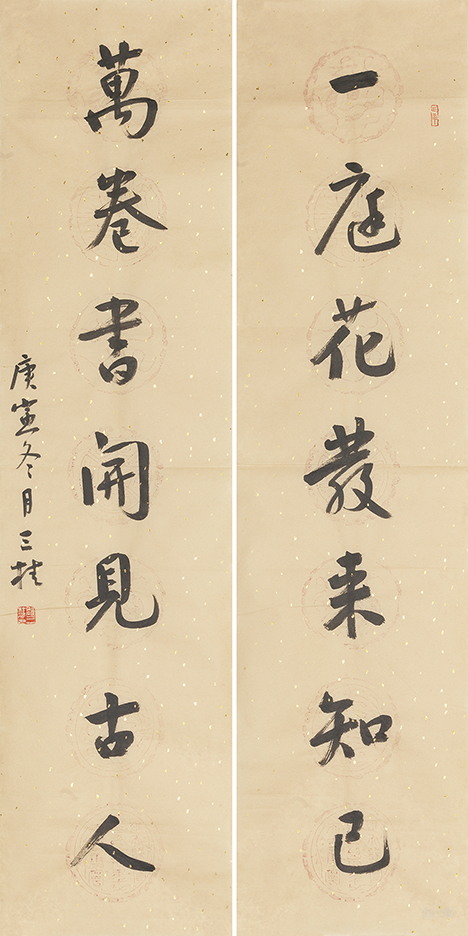 一庭花發来知己
萬卷書開見古人
庚寅冬月三桂